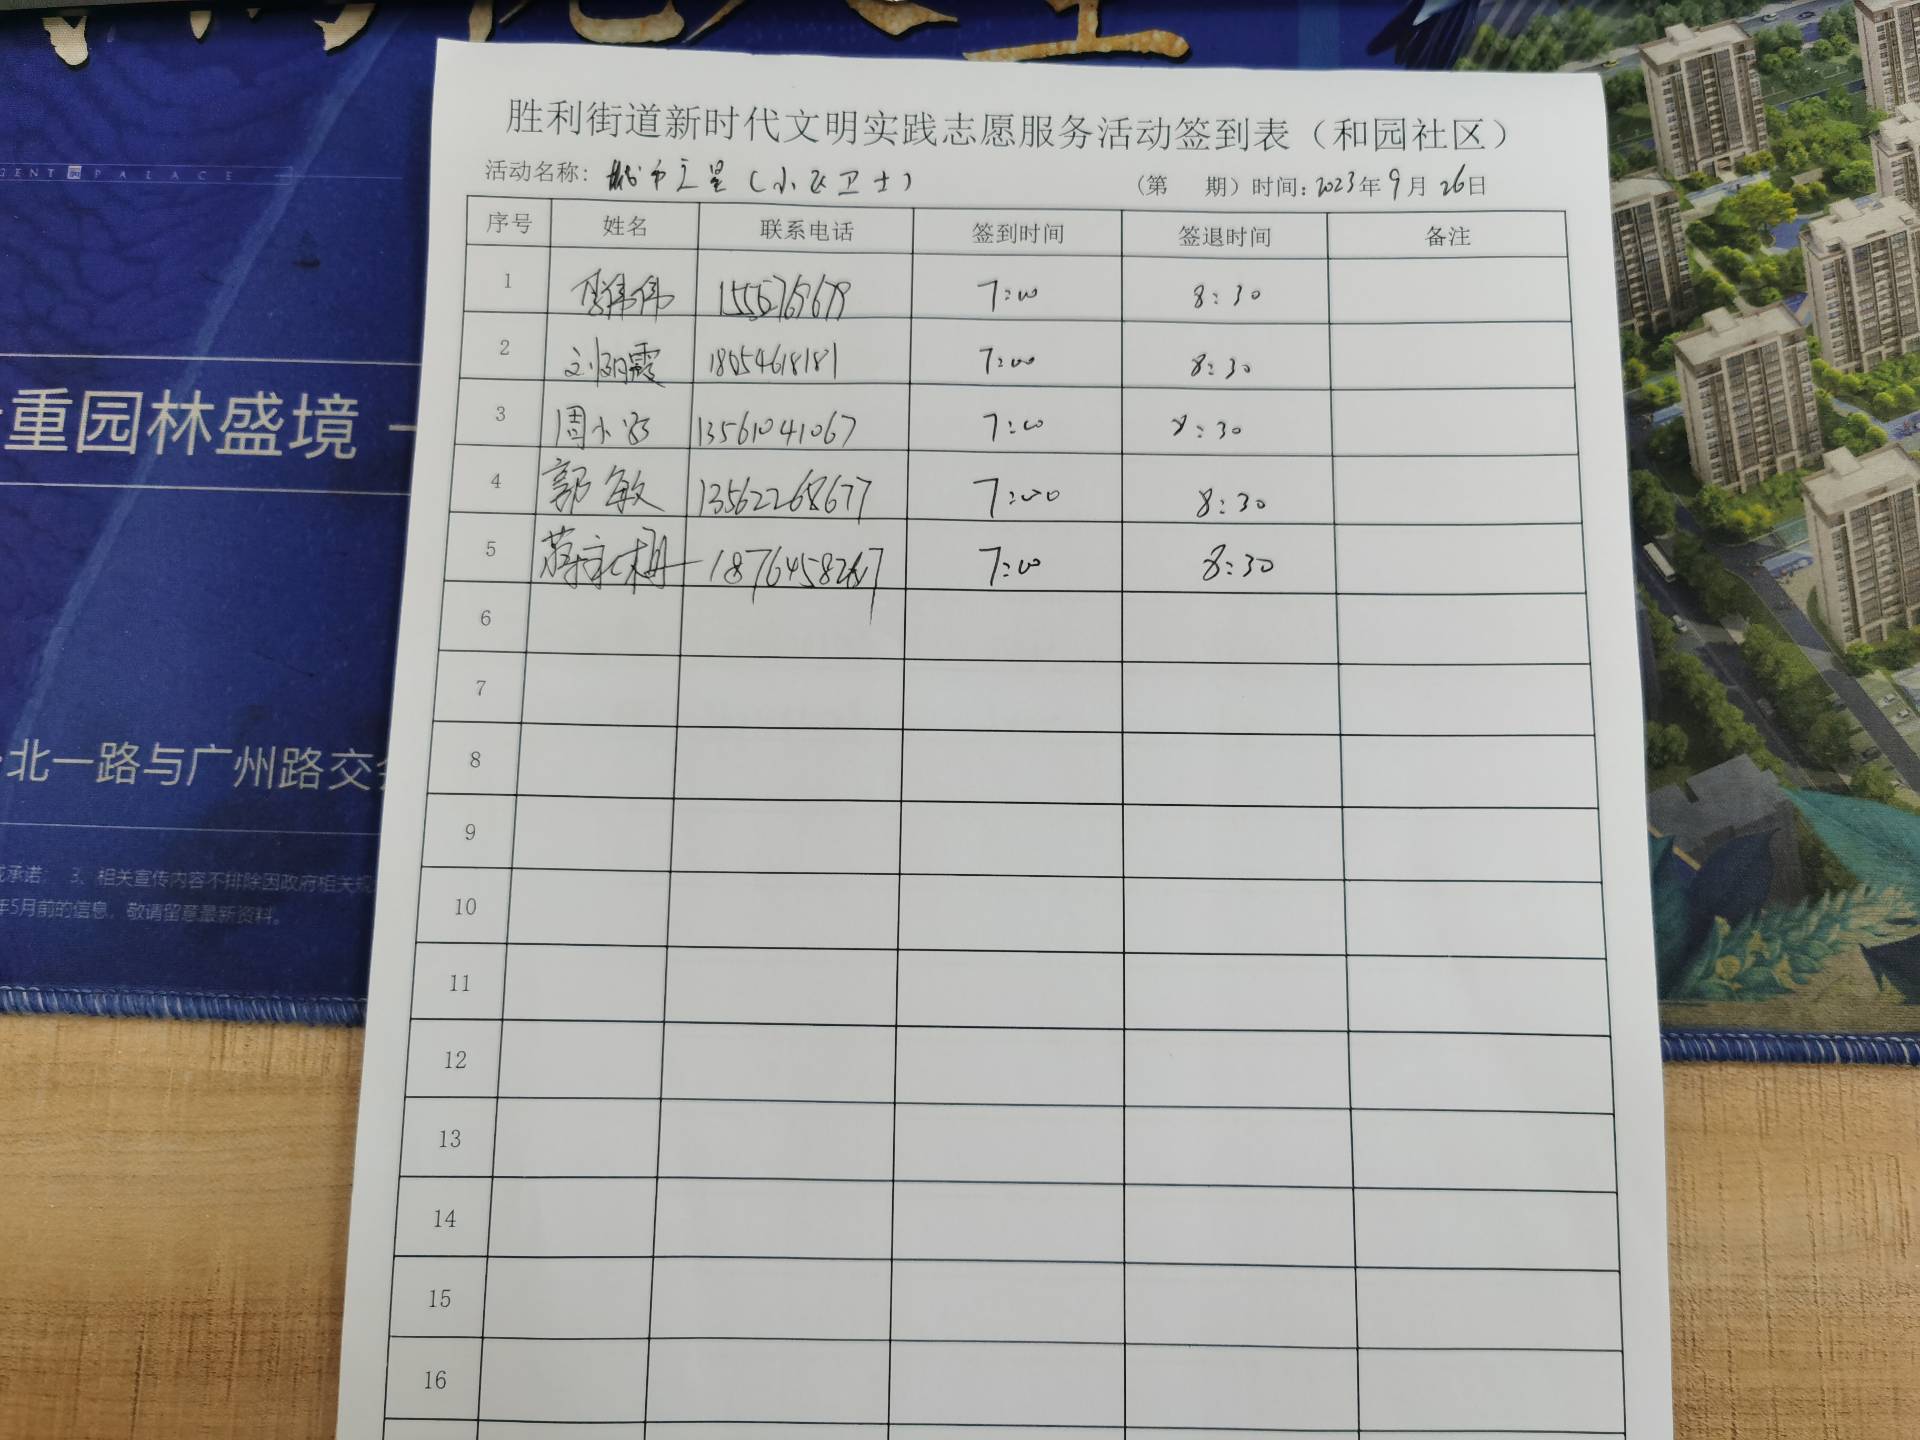 GENT PALACE
重园林盛境
北一路与广州路交
承诺； 3、相关宣传内容不排除因政府相关规
年5月前的信息，敬请留意最新资料。
胜利街道新时代文明实践志愿服务活动签到表（和园社区）
活动名称： 市之星（小飞卫士） （第 期）时间：2023年9月26日
序号 姓名 联系电话 签到时间 签退时间 备注
1 伟伟 7:00 8:30
2 霞 18054618181 7:00 8:30
3 周小 13561041067 7:00 8:30
4 郭敏 13562268677 7:00 8:30
5 7:00 8:30
6
7
8
9
10
11
12
13
14
15
16